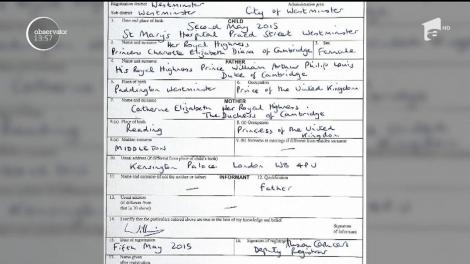 observator
13:57
HD
Registration district Westminster
Administrative area
Sub-district Westminster
City of Westminster
1. Date and place of birth CHILD
Second May 2015
St Mary's Hospital Praed Street Westminster
2. Name and surname Her Royal Highness 3. Sex
Princess Charlotte Elizabeth Diana of Cambridge Female
4. Name and surname FATHER
His Royal Highness Prince William Arthur Philip Louis
Duke of Cambridge
5. Place of birth 6. Occupation
Paddington Westminster Prince of the United Kingdom
7. Name and surname MOTHER
Catherine Elizabeth Her Royal Highness
The Duchess of Cambridge
8.(a) Place of birth 8.(b) Occupation
Reading Princess of the United
Kingdom
9.(a) Maiden surname
MIDDLETON
10. Usual address (if different from place of child's birth)
Kensington Palace London W8 4PU
11. Name and surname (if not the mother or father) INFORMANT 12. Qualification
Father
13. Usual address
(if different from
that in 10 above)
14. I certify that the particulars entered above are true to the best of my knowledge and belief
Signature
of informant
15. Date of registration 16. Signature of registrar
Fifth May 2015 Deputy Registrar
17. Name given
after registration